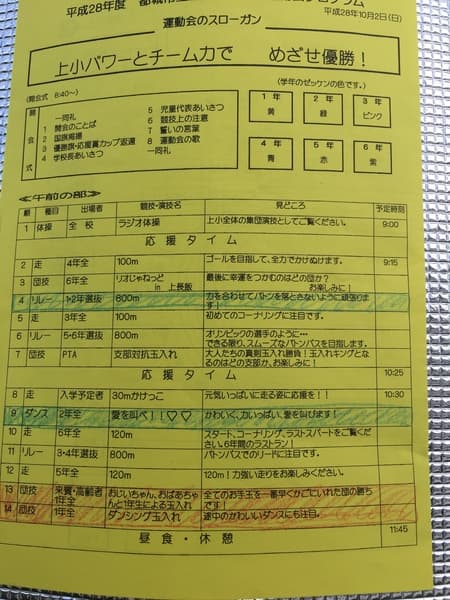 平成28年度
プログラム
平成28年10月2日(日)
運動会のスローガン
上小パワーとチーム力で めざせ優勝!
(開会式 8:40~)
(学年のゼッケンの色です。)
開会式
一同礼
1 開会のことば
2 国旗掲揚
3 優勝旗・応援賞カップ返還
4 学校長あいさつ
5 児童代表あいさつ
6 競技上の注意
7 誓いの言葉
8 運動会の歌
一同礼
1年 黄
2年 緑
3年 ピンク
4年 青
5年 赤
6年 紫
≪午前の部≫
順 種目 出場者 競技・演技名 見どころ 予定時刻
1 体操 全校 ラジオ体操 上小全体の集団演技としてご覧ください。 9:00
応援タイム
2 走 4年全 100m ゴールを目指して、全力でかけぬけます。 9:15
3 団技 6年全 リオじゃねっと in 上長飯 最後に幸運をつかむのはどの団か? お楽しみに!
4 リレー 1・2年選抜 800m 力を合わせてバトンを落とさないように頑張ります!
5 走 3年全 100m 初めてのコーナリングに注目です。
6 リレー 5・6年選抜 800m オリンピックの選手のように…できる限り、スムーズなバトンパスを目指します。
7 団技 PTA 支部対抗玉入れ 大人たちの真剣玉入れ勝負!玉入れキングとなるのはどの支部か、お楽しみに!
応援タイム 10:25
8 走 入学予定者 30mかけっこ 元気いっぱいに走る姿に応援を!! 10:30
9 ダンス 2年全 愛を叫べ!!♡♡ かわいく、力いっぱい、愛を叫びます!
10 走 6年全 120m スタート、コーナリング、ラストスパートをご覧ください。6年間のラストラン!
11 リレー 3・4年選抜 800m バトンパスでのリードに注目です。
12 走 5年全 120m 120m!力強い走りをお楽しみください。
13 団技 来賓・高齢者 1年全 おじいちゃん、おばあちゃんと1年生による玉入れ 全てのお手玉を一番早くかごにいれた団の勝ちです!
14 団技 1年全 ダンシング玉入れ 途中のかわいいダンスにも注目。
昼食・休憩 11:45